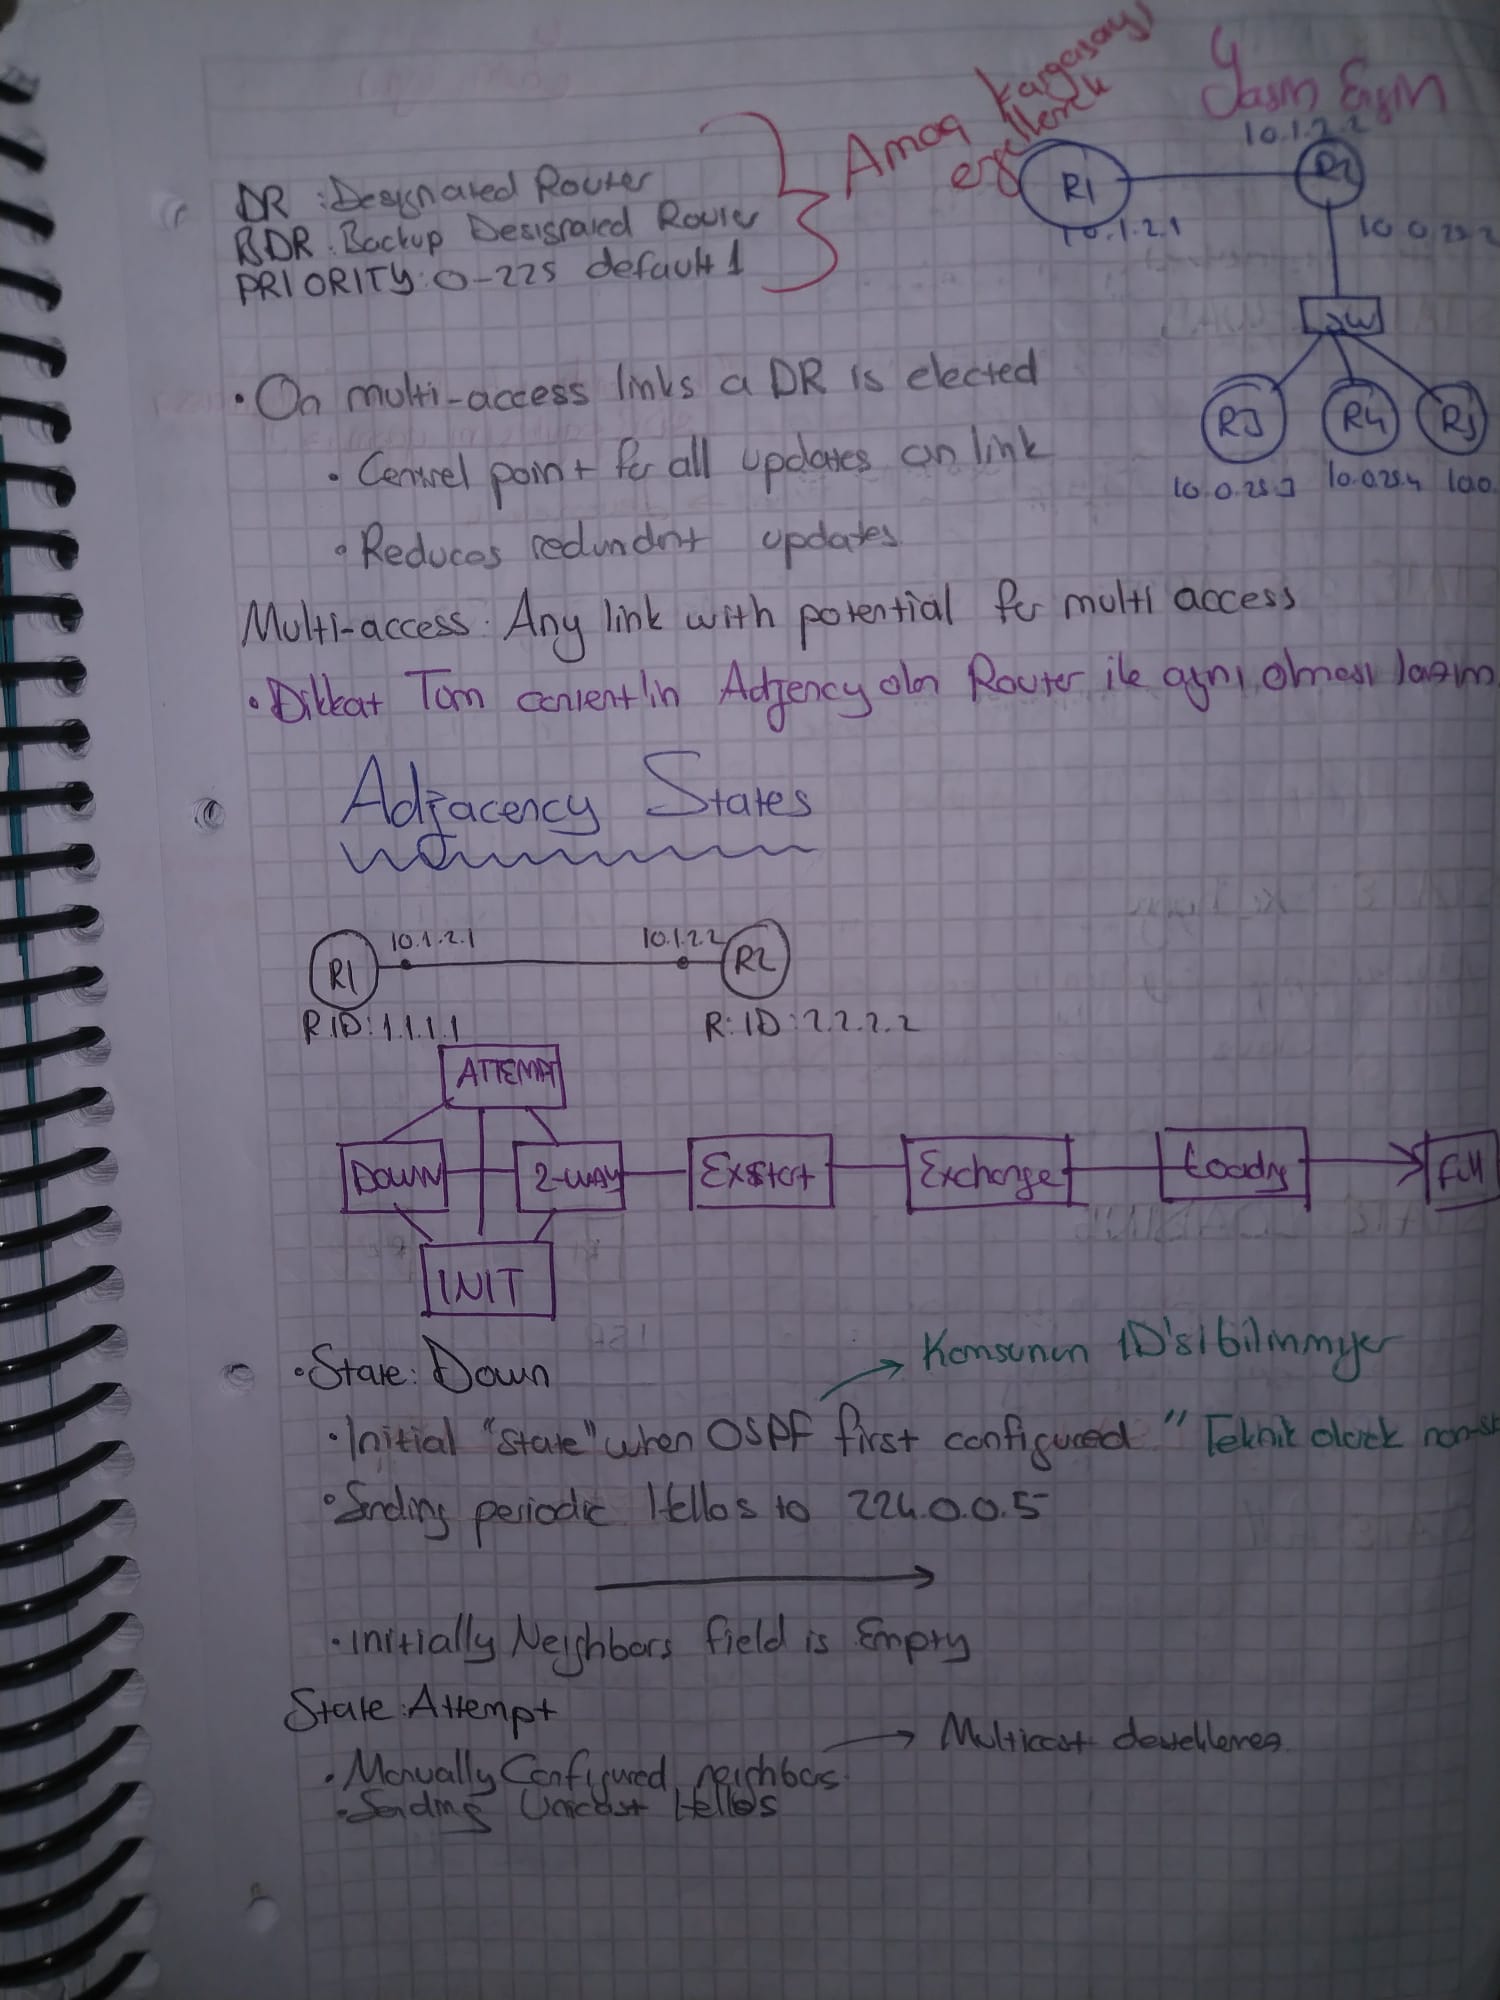 Yasm Eışm
Amaç kargaşayı
engellemek
DR : Designated Router
BDR : Backup Designated Router
PRIORITY : 0-225 default 1
R1
10.1.2.1
10.1.2.2
R2
10.0.25.2
SW
R3
R4
R5
10.0.25.3
10.0.25.4
10.0
• On multi-access links a DR is elected
• Central point for all updates on link
• Reduces redundant updates
Multi-access : Any link with potential for multi access
• Dikkat Tam content'in Adjency olan Router ile aynı olması lazım
Adjacency States
R1
10.1.2.1
10.1.2.2
R2
R ID : 1.1.1.1
R : ID : 2.2.2.2
ATTEMPT
DOWN
2-WAY
Exstart
Exchange
Loading
Full
INIT
• State : Down
Komsunun ID'si bilinmiyor
• Initial "state" when OSPF first configured " Teknik olarak non-st
• Sending periodic Hellos to 224.0.0.5
• initially Neighbors field is Empty
State : Attempt
• Manually Configured neighbors
Multicast desteklemez
• Sending Unicast Hellos